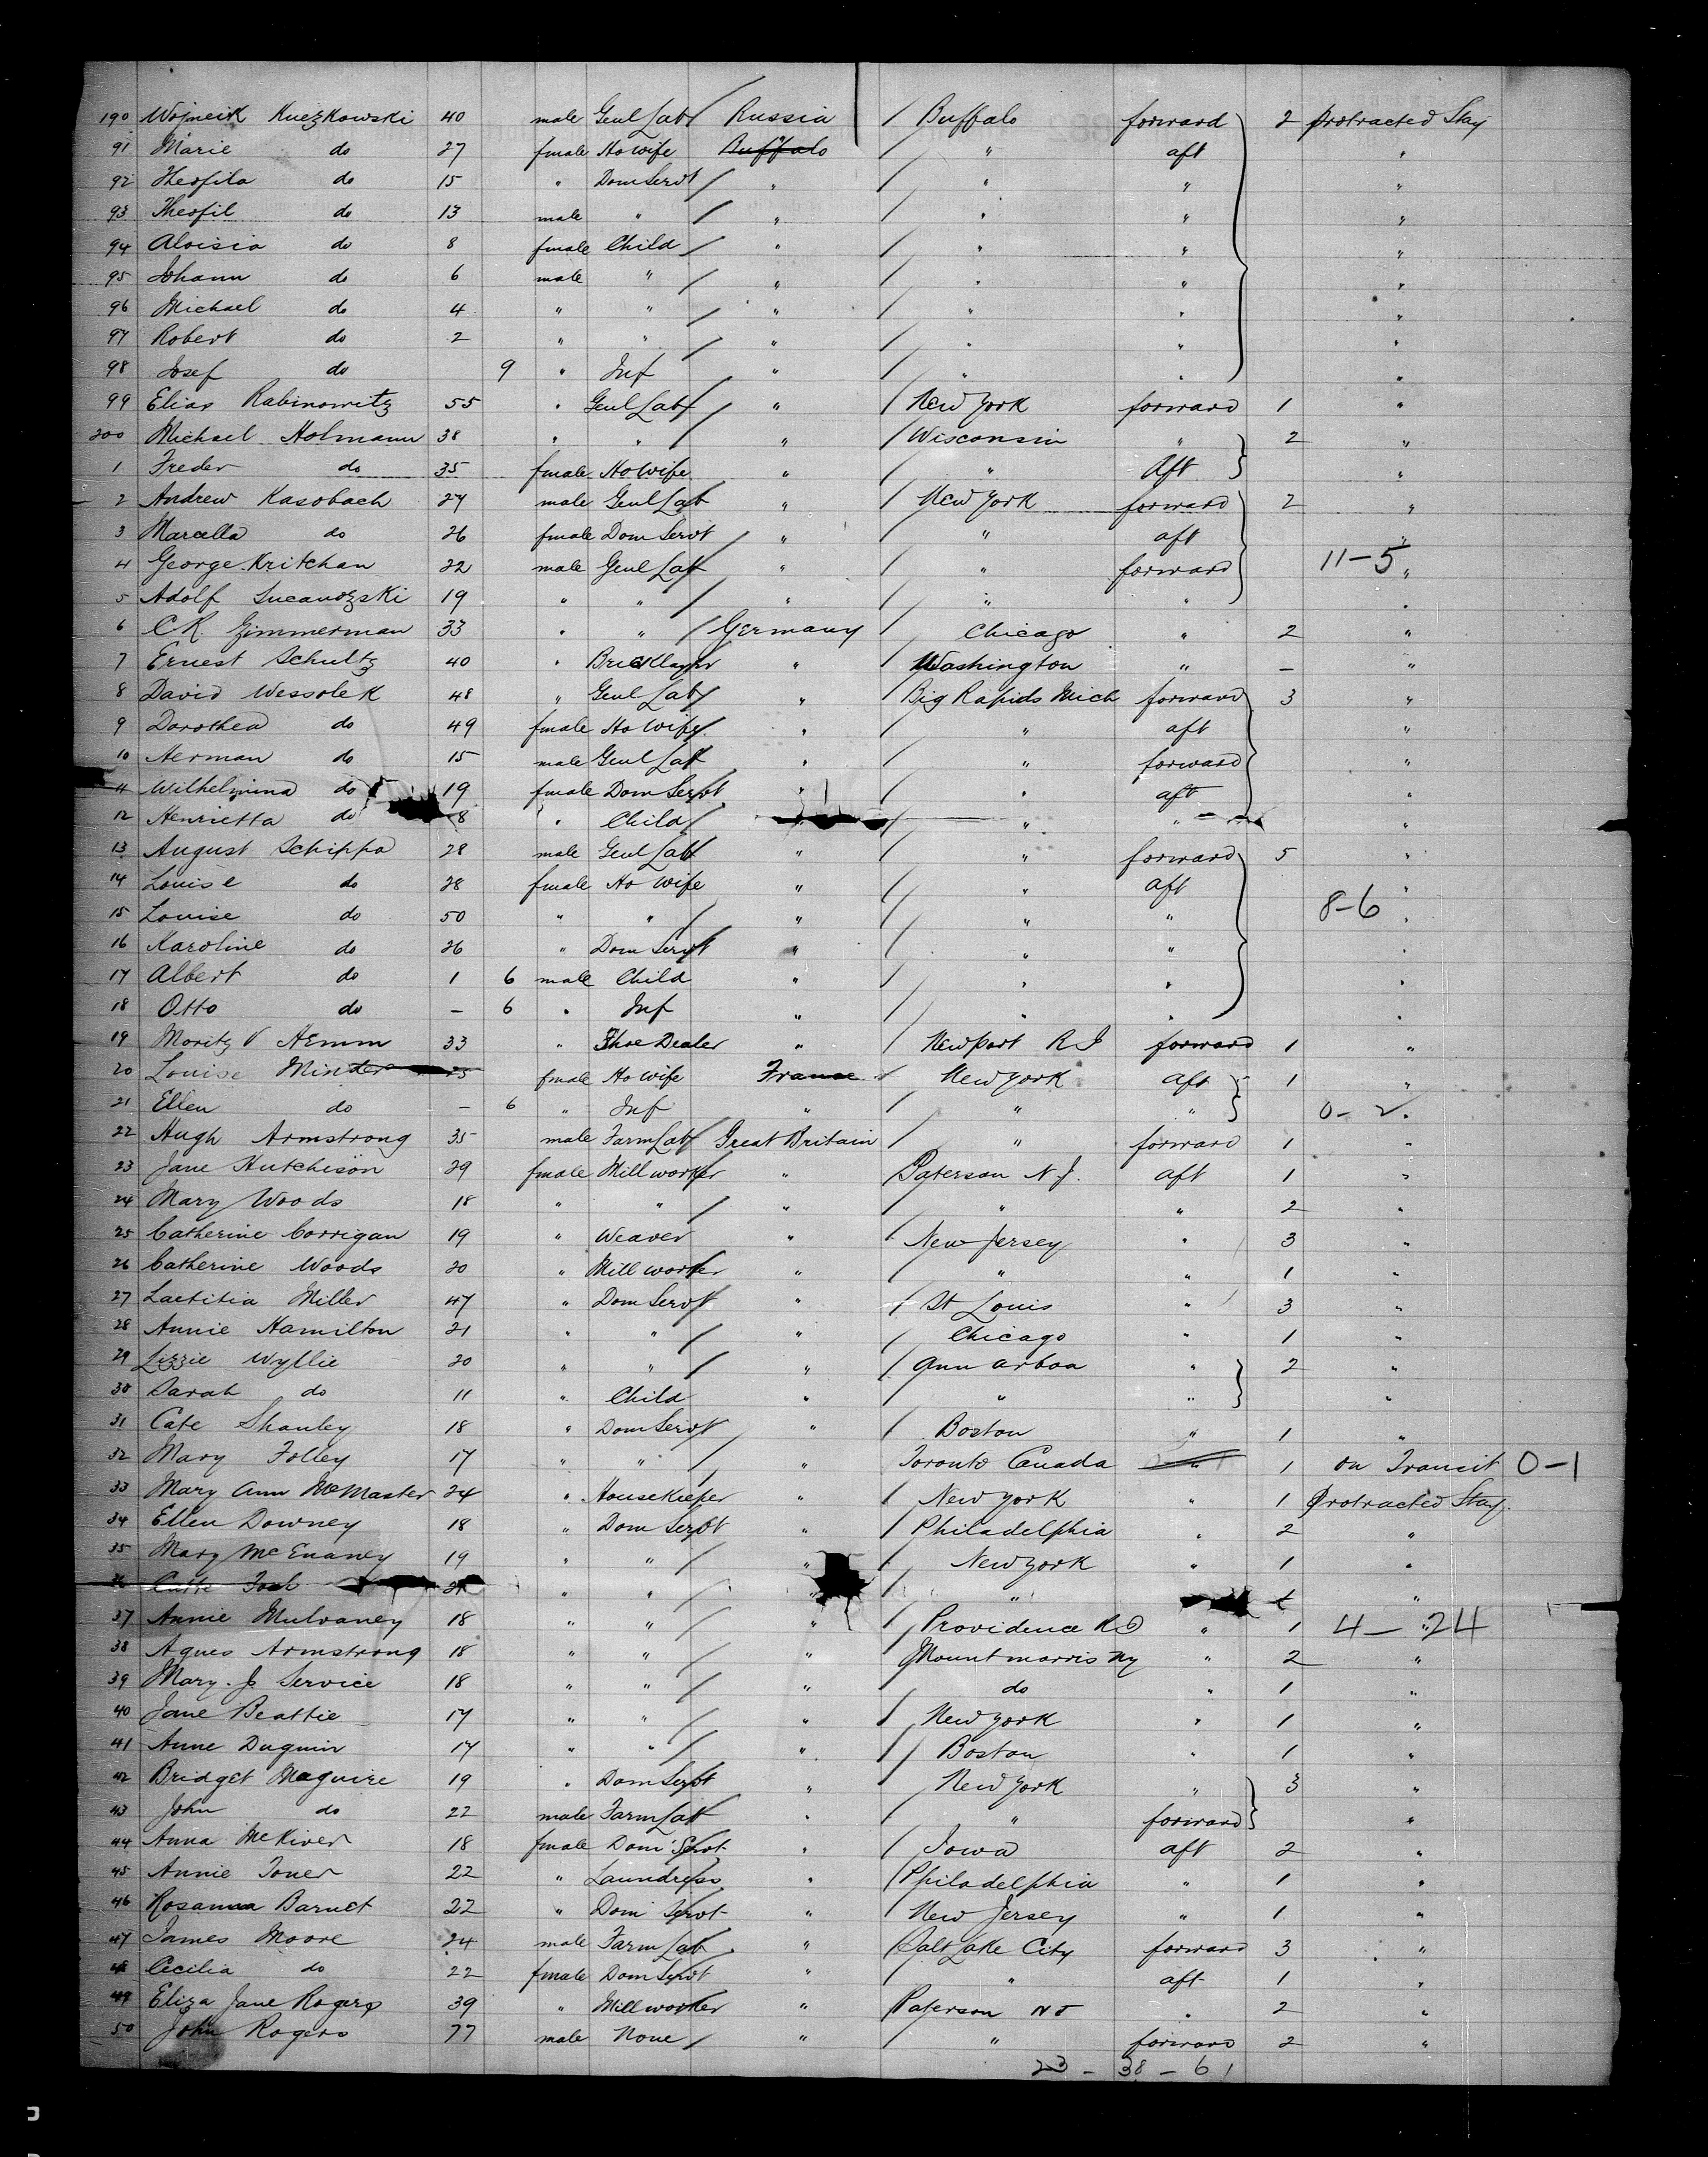 190 Wojneik Kuczkowski 40 male Genl Lab / Russia / Buffalo forward 2 Protracted Stay
91 Marie do 27 fmale Ho wife Buffalo " aft "
92 Theofila do 15 " Dom Servt / " / " " "
93 Theofil do 13 male " / " / " " "
94 Aloisia do 8 fmale Child / " / " " "
95 Johann do 6 male " / " / " " "
96 Michael do 4 " " / " / " " "
97 Robert do 2 " " / " / " " "
98 Josef do 9 " Inf " / " " "
99 Elias Rabinowitz 55 " Genl Lab / " / New York forward 1 "
200 Michael Holmann 38 " " / " / Wisconsin " 2 "
1 Freder do 35 fmale Ho Wife " / " Aft "
2 Andrew Kasobach 27 male Genl Lab " / New York forward 2 "
3 Marcella do 26 fmale Dom Servt / " / " aft "
4 George Kritchan 22 male Genl Lab " / " forward 11-5 "
5 Adolf Lucanozski 19 " " / " / " " "
6 C R. Zimmerman 33 " " / Germany / Chicago " 2 "
7 Ernest Schultz 40 " Bricklayer " Washington " - "
8 David Wessolek 48 " Genl Lab / " Big Rapids Mich forward 3 "
9 Dorothea do 49 fmale Ho Wife " " aft "
10 Herman do 15 male Genl Lab " / " forward "
11 Wilhelmina do 19 fmale Dom Servt " / " aft "
12 Henrietta do 8 " Child / " / " " "
13 August Schippa 28 male Genl Lab " / " forward 5 "
14 Louise do 28 fmale Ho wife " / " aft "
15 Louise do 50 " " / " / " " 8-6 "
16 Karoline do 26 " Dom Servt " / " " "
17 Albert do 1 6 male Child " / " " "
18 Otto do - 6 " Inf " / " " "
19 Moritz V Hemm 33 " Shoe Dealer " / Newport R I forward 1 "
20 Louise Minder fmale Ho wife France New York aft 1 "
21 Ellen do - 6 " Inf " / " " 0-2 "
22 Hugh Armstrong 35 male Farm Lab / Great Britain / " forward 1 "
23 Jane Hutchison 29 fmale Millworker " Paterson N.J. aft 1 "
24 Mary Woods 18 " " / " / " " 2 "
25 Catherine Corrigan 19 " Weaver " / New Jersey " 3 "
26 Catherine Woods 20 " Millworker " / " " 1 "
27 Laetitia Miller 47 " Dom Servt " / St Louis " 3 "
28 Annie Hamilton 21 " " / " / Chicago " 1 "
29 Lizzie Wyllie 20 " " / " / Ann arboa " 2 "
30 Sarah do 11 " Child " / " " "
31 Cate Shanley 18 " Dom Servt " / Boston " 1 "
32 Mary Folley 17 " " / " Toronto Canada " 1 on Transit 0-1
33 Mary Ann McMaster 24 " Housekeeper " / New York " 1 Protracted Stay
34 Ellen Downey 18 " Dom Servt " / Philadelphia " 2 "
35 Mary McEnaney 19 " " / " / New York " 1 "
36 " " / " / " "
37 Annie Mulvaney 18 " " / " / Providence R I " 1 4-24 "
38 Agnes Armstrong 18 " " / " / Mountmorris Ny " 2 "
39 Mary J Service 18 " " / " / do " 1 "
40 Jane Beattie 17 " " / " / New York " 1 "
41 Anne Dugnin 17 " " / " / Boston " 1 "
42 Bridget Maguire 19 " Dom Servt " / New York " 3 "
43 John do 22 male Farm Lab " / " forward "
44 Anna McKiver 18 fmale Dom Servt " / Iowa aft 2 "
45 Annie Toner 22 " Laundress " / Philadelphia " 1 "
46 Rosanna Barnet 22 " Dom Servt " / New Jersey " 1 "
47 James Moore 24 male Farm Lab " / Salt Lake City forward 3 "
48 Cecilia do 22 fmale Dom Servt " / " aft 1 "
49 Eliza Jane Rogers 39 " Millworker " Paterson N J " 2 "
50 John Rogers 77 male None / " / " forward 2 "
23 - 38 - 61